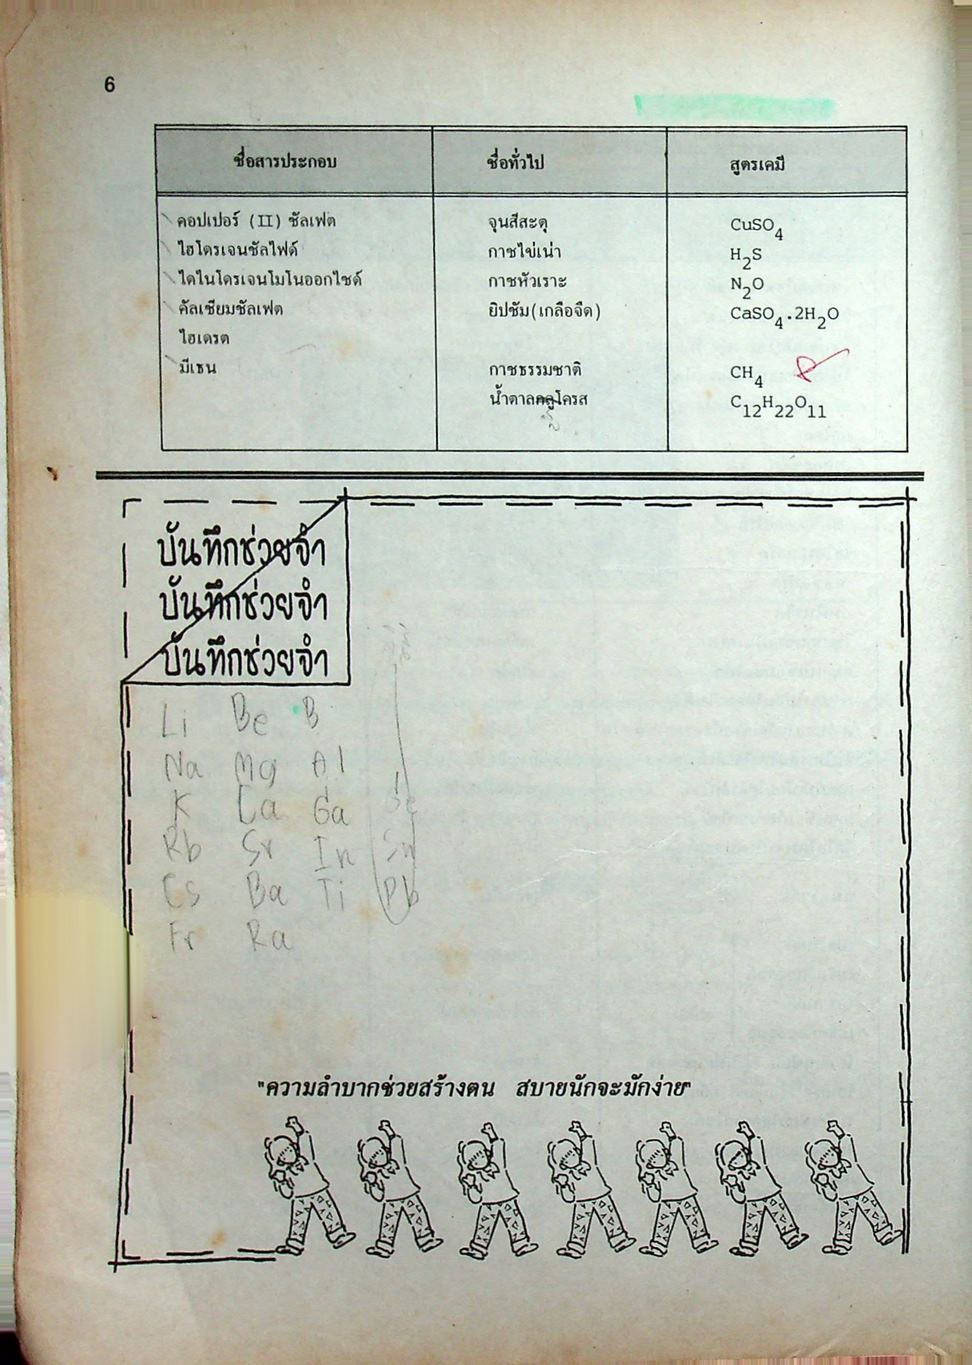 6
ชื่อสารประกอบ ชื่อทั่วไป สูตรเคมี
คอปเปอร์ (II) ซัลเฟต จุนสีสะตุ CuSO4
ไฮโดรเจนซัลไฟด์ กาซไข่เน่า H2S
ไดไนโตรเจนโมโนออกไซด์ กาซหัวเราะ N2O
คัลเซียมซัลเฟต ยิปซัม(เกลือจืด) CaSO4.2H2O
ไฮเดรต
มีเธน กาซธรรมชาติ CH4
น้ำตาลกลูโครส C12H22O11
บันทึกช่วยจำ
บันทึกช่วยจำ
บันทึกช่วยจำ
Li Be B
Na Mg Al
K Ca Ga Ge
Rb Sr In Sn
Cs Ba Ti Pb
Fr Ra
"ความลำบากช่วยสร้างตน สบายนักจะมักง่าย"